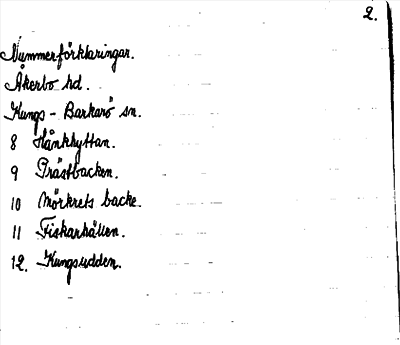 2.
Nummerförklaringar.
Åkerbo hd.
Kungs-Barkarö sn.
8 Hånkhyttan.
9 Prästbacken.
10 Mörkrets backe.
11 Fiskarhällen.
12. Kungsudden.